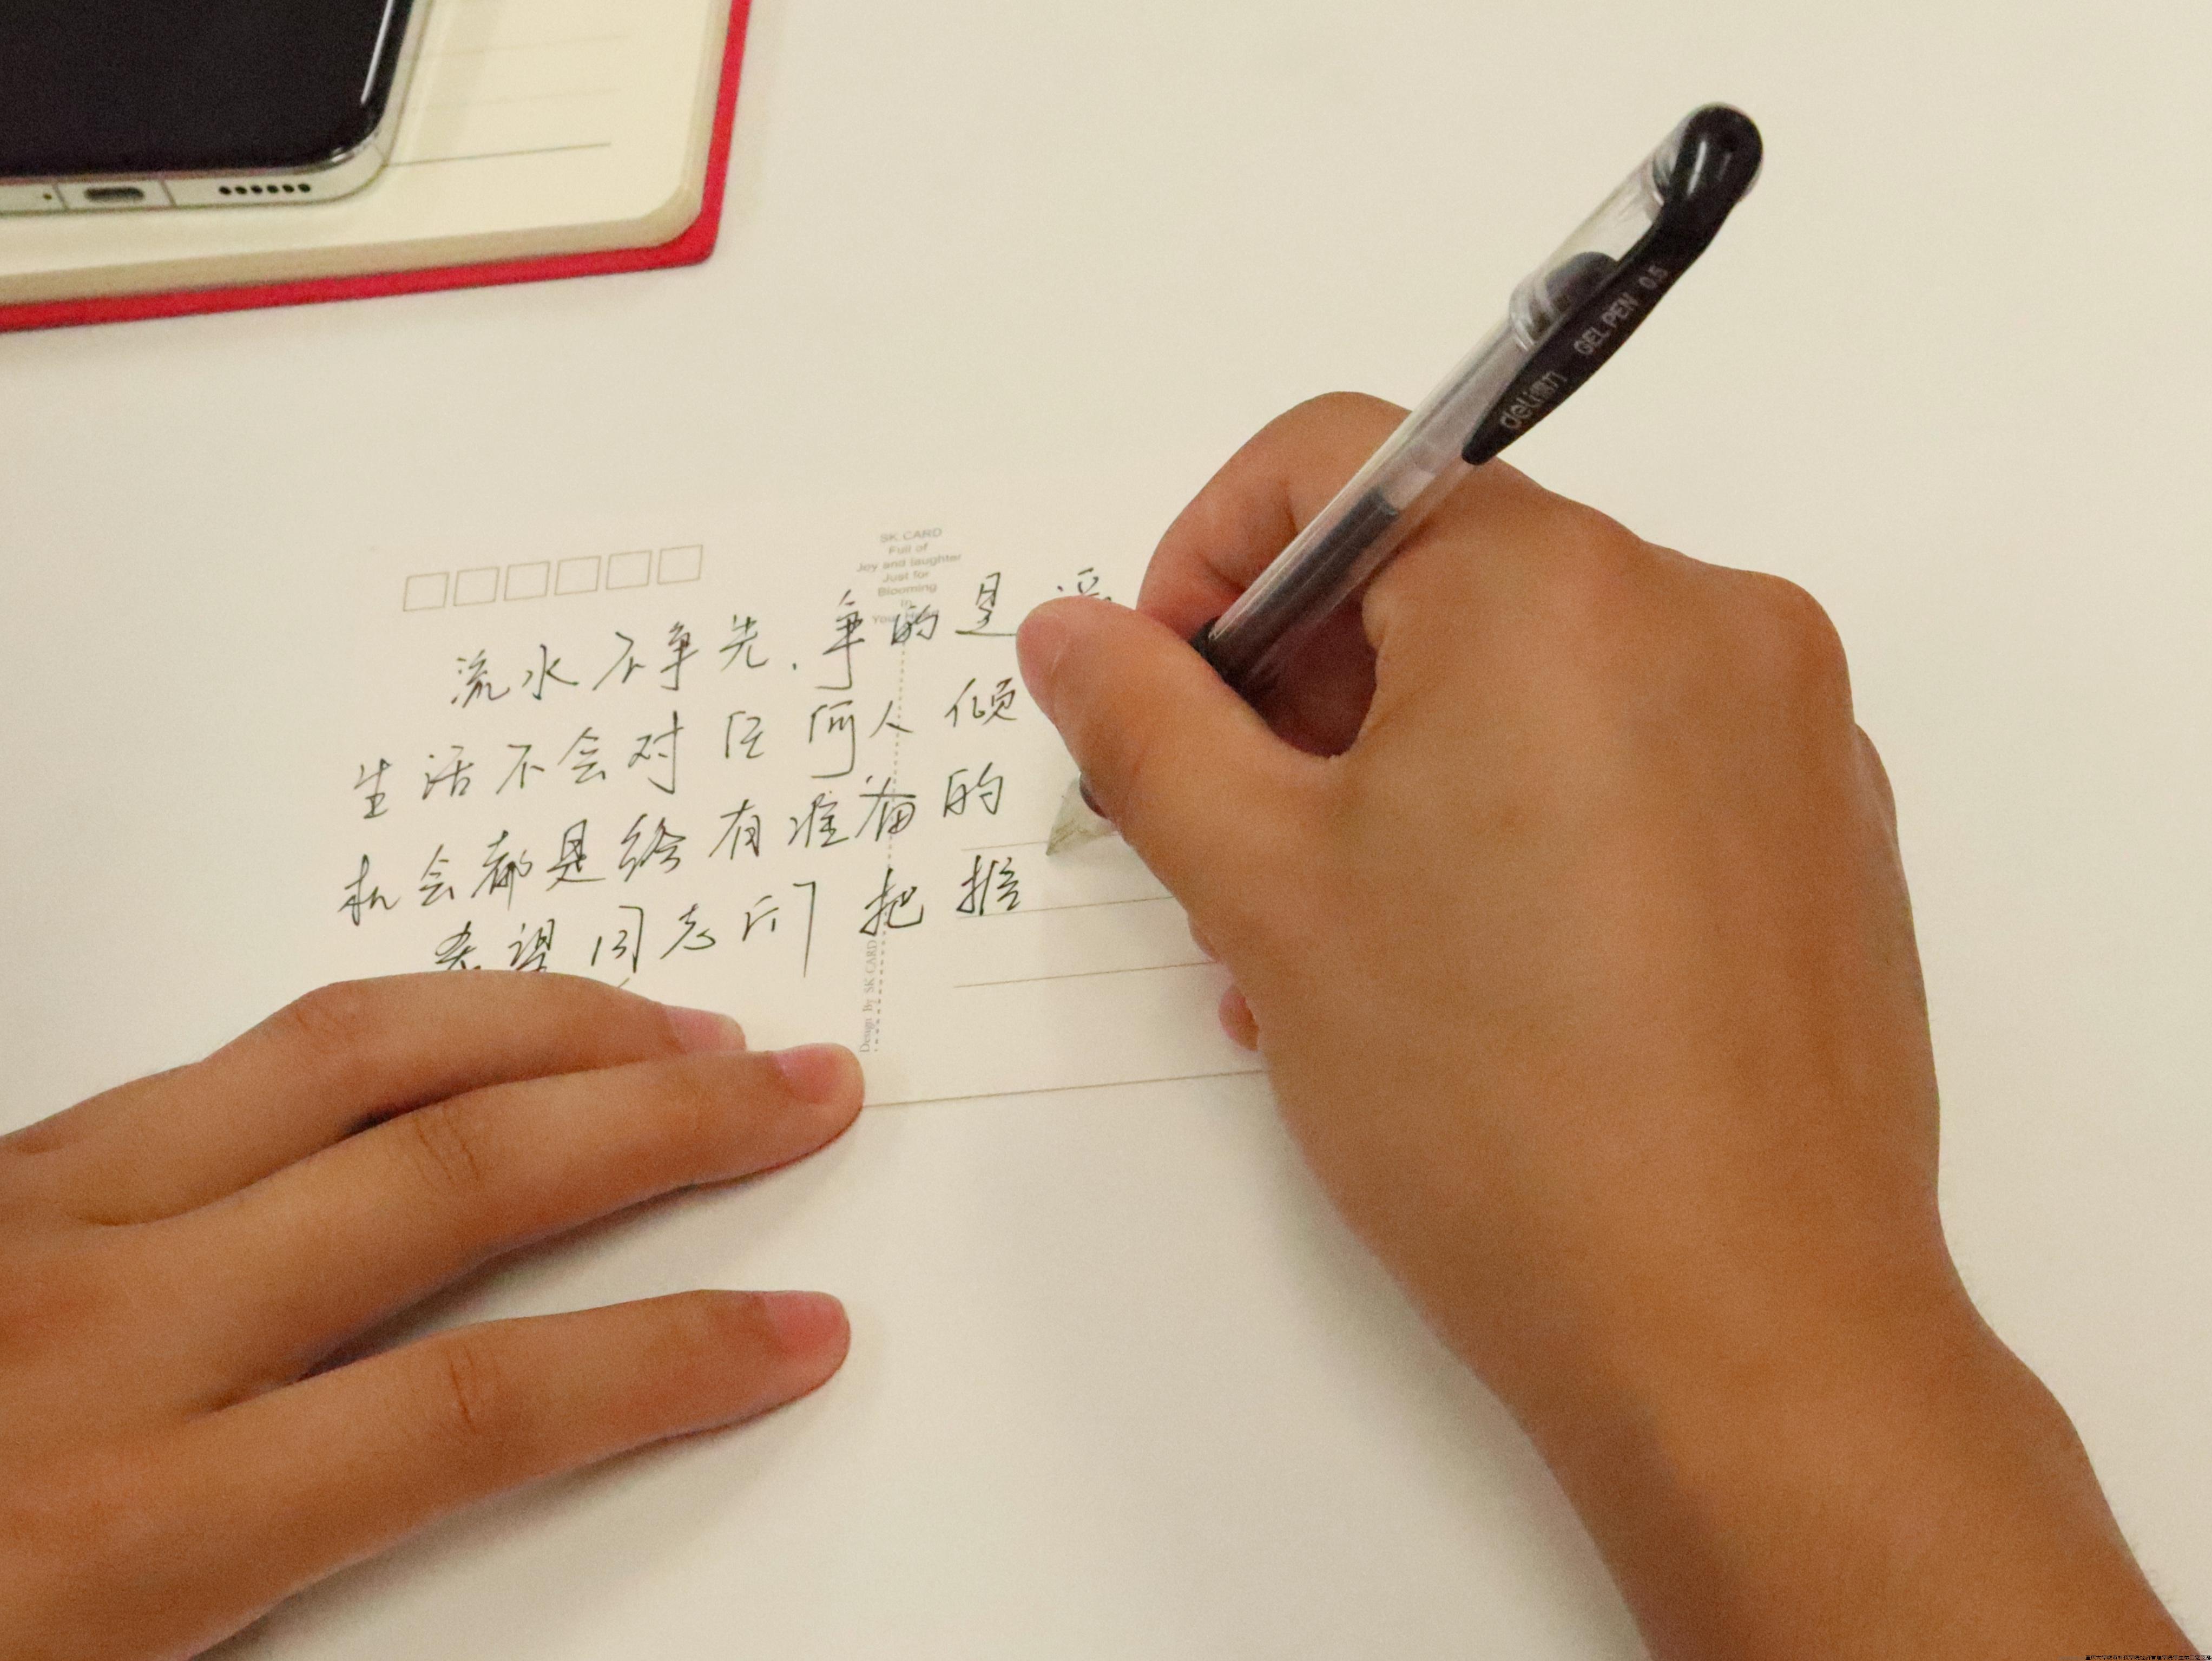 SK CARD
Full of
Joy and laughter
Just for
Blooming
In
流水不争先,争的是
生活不会对任何人倾
机会都是给有准备的
希望同志们把握
Design by SK CARD
deli 得力 GEL PEN 0.5